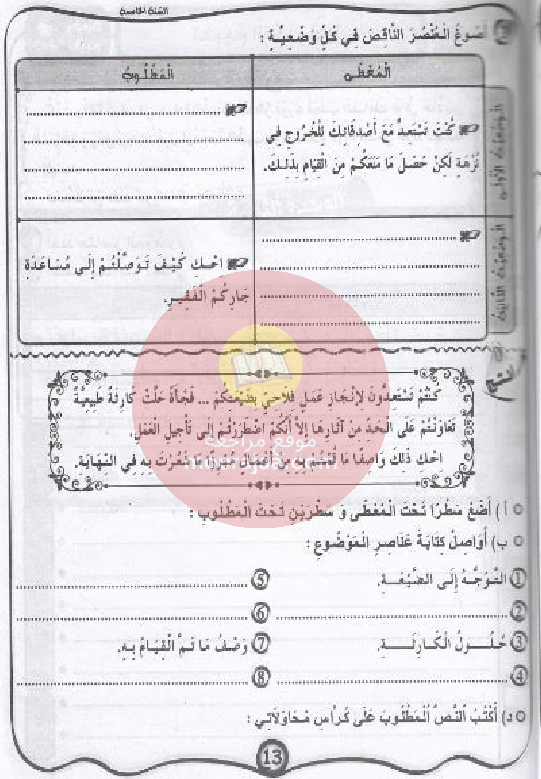 السنة الخامسة
أَصُوغُ الْعُنْصُرَ النَّاقِصَ فِي كُلِّ وَضْعِيَّةٍ :
الْمُعْطَى
الْمَطْلُوبُ
الوضعيّة الأولى
كُنْتَ تَسْتَعِدُّ مَعَ أَصْدِقَائِكَ لِلْخُرُوجِ فِي
نُزْهَةٍ لَكِنْ حَصَلَ مَا مَنَعَكُمْ مِنَ الْقِيَامِ بِذَلِكَ.
الوضعيّة الثانية
احْكِ كَيْفَ تَوَصَّلْتُمْ إِلَى مُسَاعَدَةِ
جَارِكُمْ الْفَقِيرِ.
كُنْتُمْ تَسْتَعِدُّونَ لِإِنْجَازِ عَمَلٍ فِلَاحِيٍّ بِضَيْعَتِكُمْ ... فَجْأَةً حَلَّتْ كَارِثَةٌ طَبِيعِيَّةٌ
تَعَاوَنْتُمْ عَلَى الْحَدِّ مِنْ آثَارِهَا إِلَّا أَنَّكُمْ اضْطُرِرْتُمْ إِلَى تَأْجِيلِ الْعَمَلِ.
احْكِ ذَلِكَ وَاصِفًا مَا قُمْتُمْ بِهِ مِنْ أَعْمَالٍ مُبْرِزًا مَا شَعُرْتَ بِهِ فِي النِّهَايَةِ.
موقع مراجعة
أ) أَضَعُ سَطْرًا تَحْتَ الْمُعْطَى وَ سَطْرَيْنِ تَحْتَ الْمَطْلُوبِ :
ب) أُوَاصِلُ كِتَابَةَ عَنَاصِرِ الْمَوْضُوعِ :
① التَّوَجُّهُ إِلَى الضَّيْعَةِ. ⑤
② ⑥
③ حُلُولُ الْكَارِثَةِ. ⑦ وَصْفُ مَا تَمَّ الْقِيَامُ بِهِ.
④ ⑧
د) أَكْتُبُ النَّصَّ الْمَطْلُوبَ عَلَى كُرَّاسِ مُحَاوَلَاتِي :
13